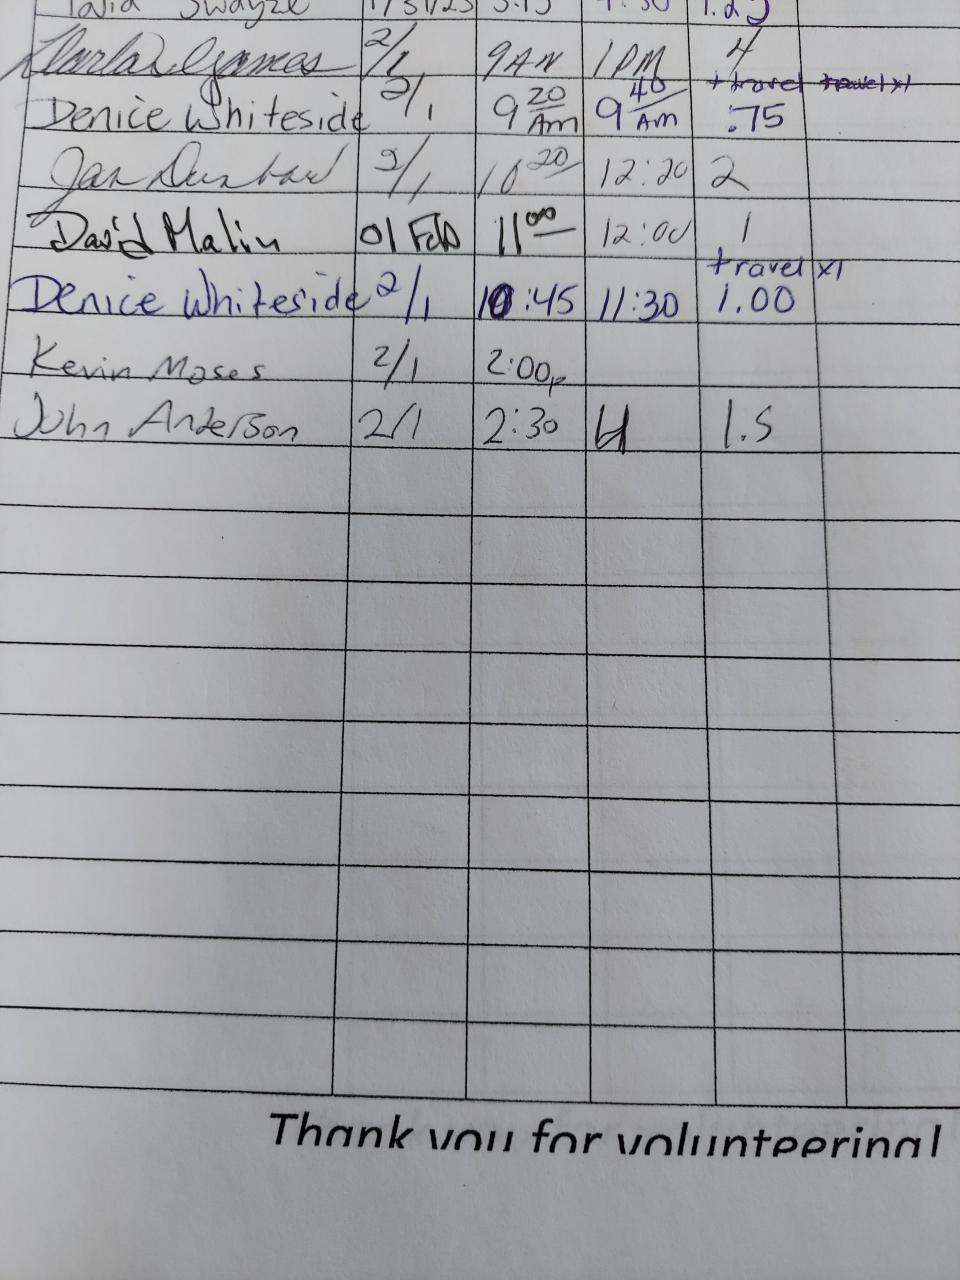 Swayze 1/31/23 3:15 4:30 1.25
2/1 9AM 1PM 4
+ travel travel x1
Denice Whiteside 2/1 9 20 Am 9 40 AM .75
Jan Dunbar 2/1 10 20 12:20 2
David Malin 01 Feb 11 00 12:00 1
travel x1
Denice Whiteside 2/1 10:45 11:30 1.00
Kevin Moses 2/1 2:00p
John Anderson 2/1 2:30 4 1.5
Thank you for volunteering!